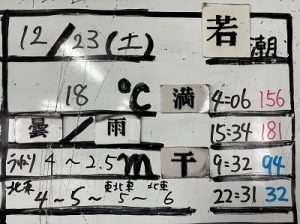 12/23(土) 若潮
18 ℃ 満 4:06 156
曇/雨 15:34 181
うねり 4~2.5m 干 9:32 94
北東 4~5~ 東北東 5~ 北東 6 22:31 32